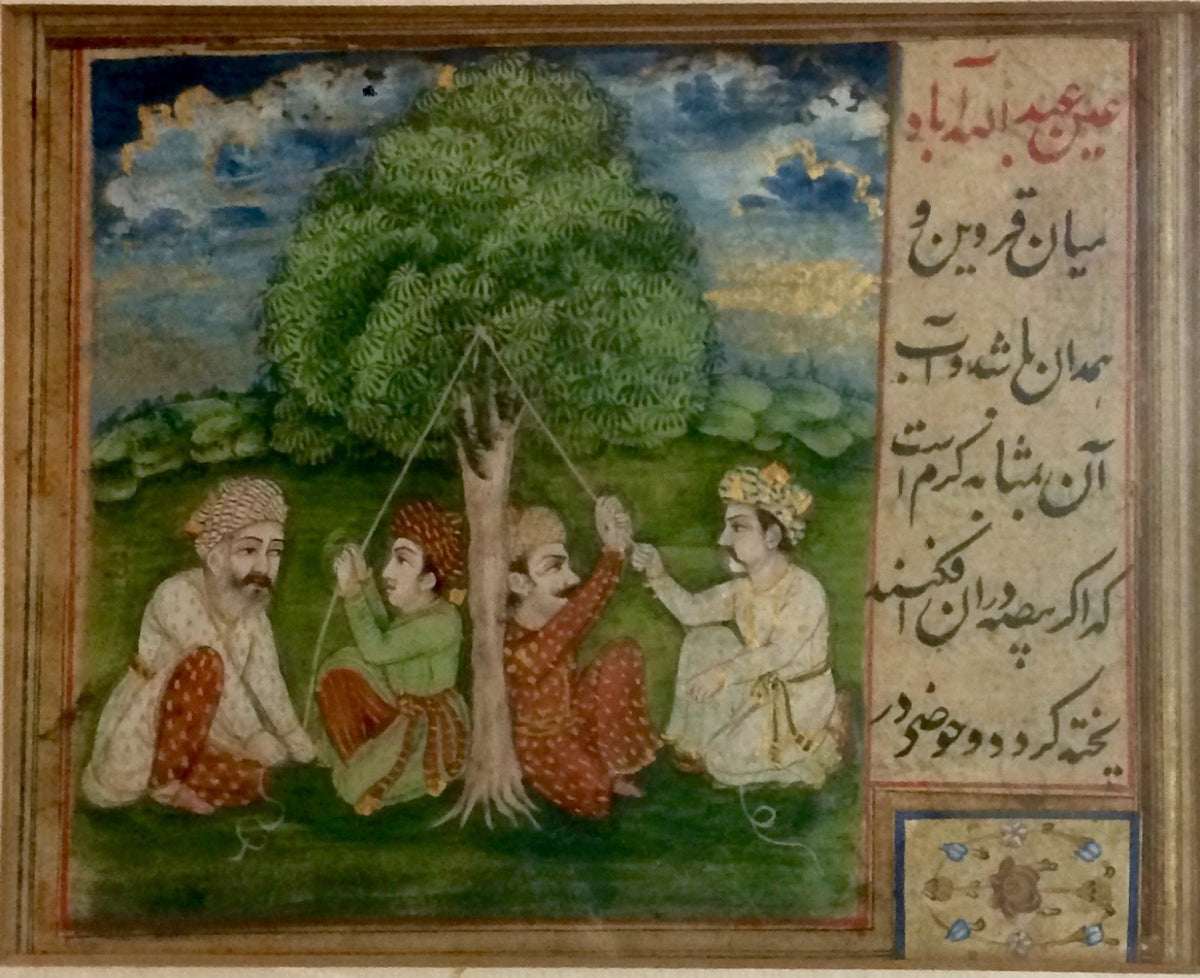 عین عبد الله آباد
میان قزوین و
همدان باشد و آب
آن بمثابه گرم است
که اگر بیضه در آن افکنند
پخته گردد و حوضی در